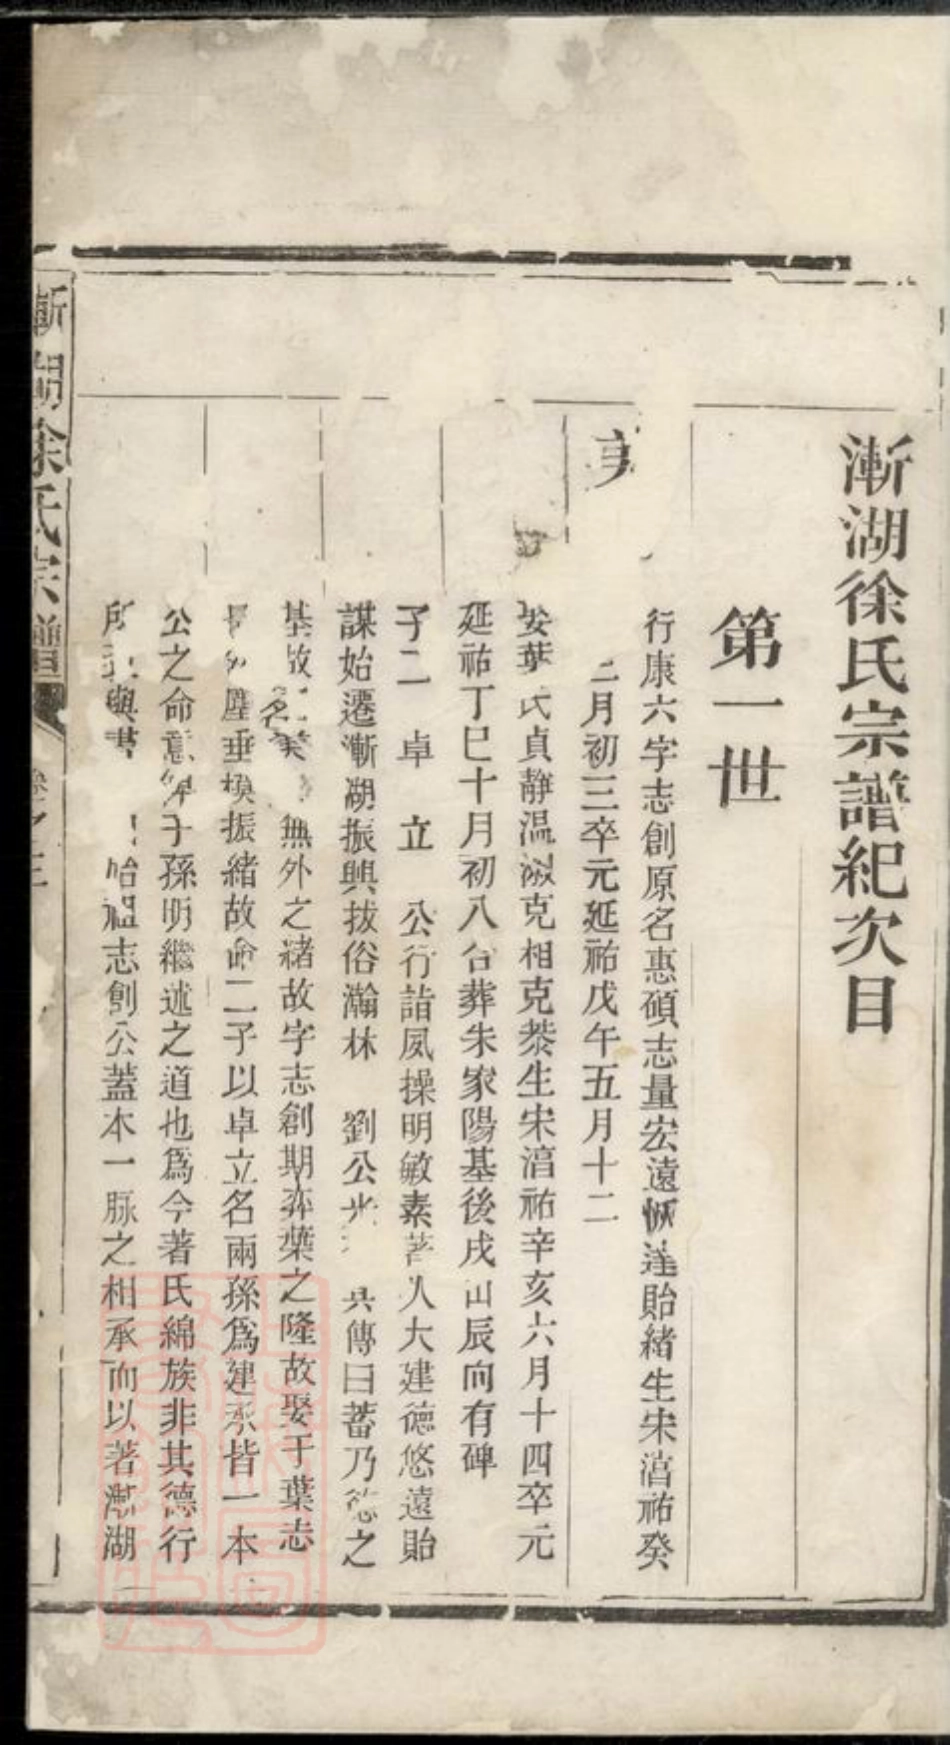 漸湖徐氏宗譜紀次目
第一世
行康六字志創原名惠碩志量宏遠恢達貽緒生宋湻祐癸
二月初三卒元延祐戊午五月十二
安葉氏貞靜温淑克相克恭生宋湻祐辛亥六月十四卒元
延祐丁巳十月初八合葬朱家陽基後戌山辰向有碑
子二 卓 立 公行詣夙操明敏素著人大建德悠遠貽
謀始遷漸湖振興拔俗瀚林 劉公 共傳曰蓄乃德之
基故 名 無外之緒故字志創期弈葉之隆故娶于葉志
塵垂模振緒故命二子以卓立名兩孫爲建承皆一本
公之命意 子孫明繼述之道也爲今著氏綿族非其德行
與 志創公蓋本一脉之相承而以著漸湖
漸湖徐氏宗譜